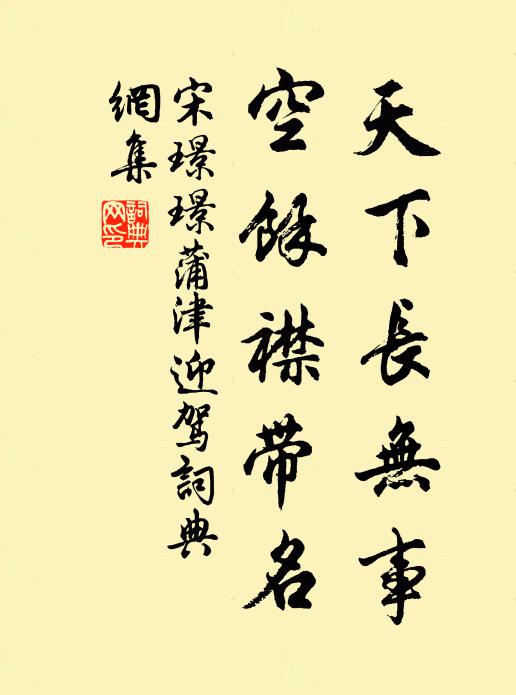 天下長無事
空餘襟帶名
宋璟璟蒲津迎駕詞典
網集
詞典网印